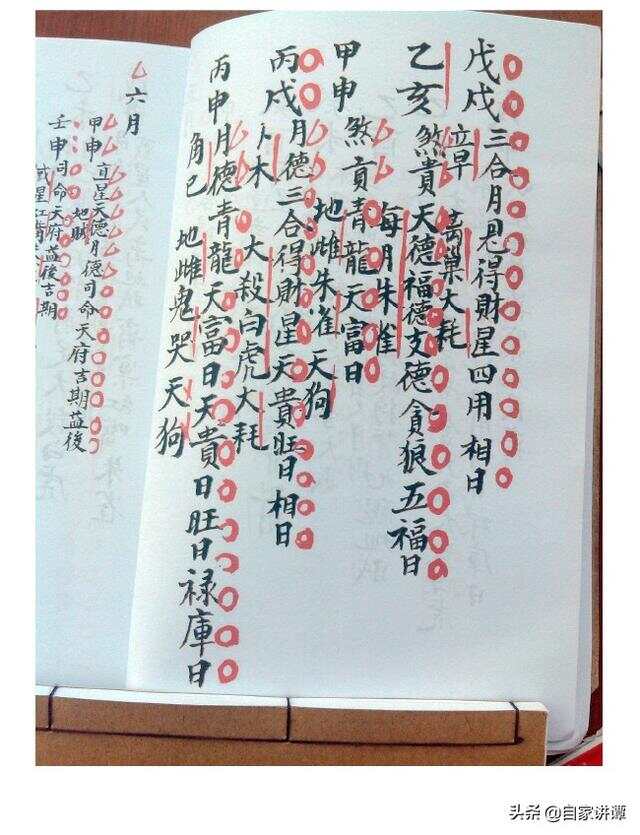 戊戌 三合月恩得財星四用相日
章 离巢大耗
乙亥 煞貴天德福德支德貪狼五福日
每月朱雀
甲申 煞貢青龍天富日
地雌朱雀天狗
丙戌 月德三合得財星天貴旺日相日
木 大殺白虎大耗
丙申 月德青龍天富日天貴日旺日禄庫日
角已 地雌鬼哭天狗
六月
甲申 直星天德月德司命天府吉期益後
地賊
壬申 司命天府益後吉期
头条 @自家讲谭